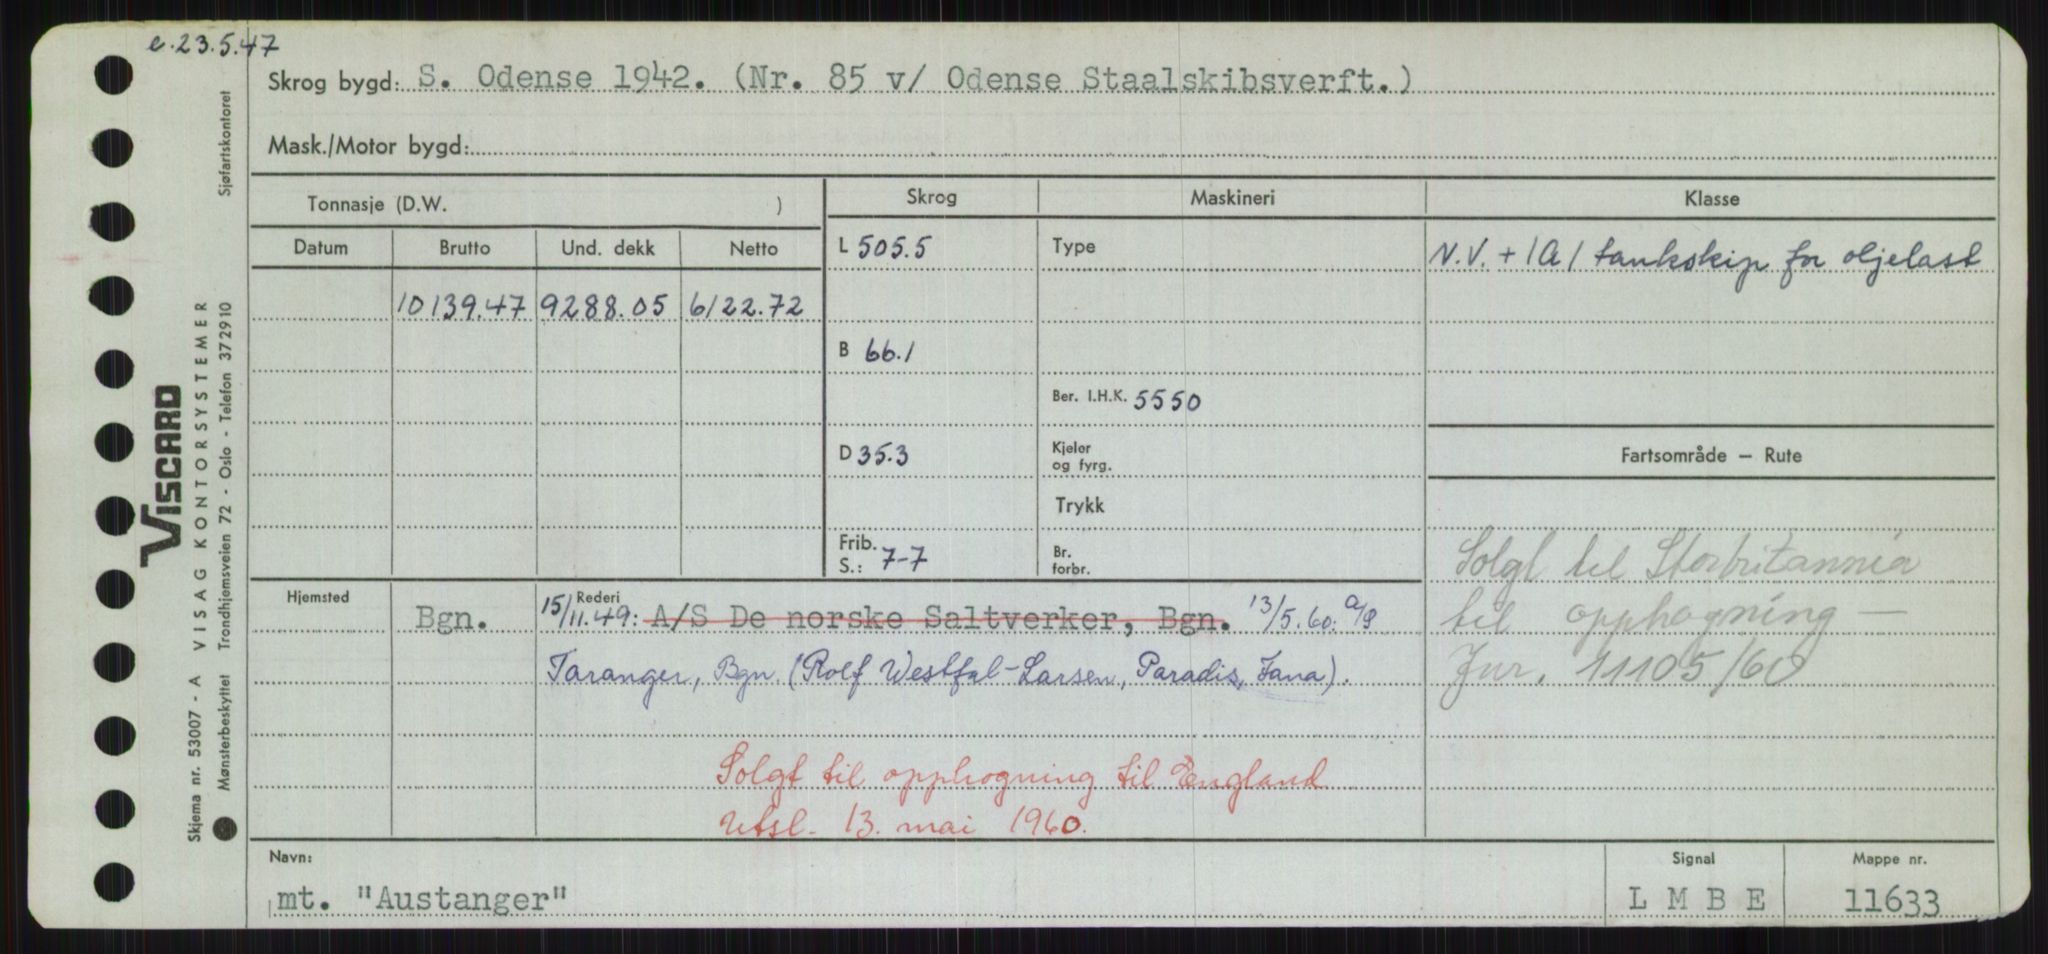 e.23.5.47
Skrog bygd: S. Odense 1942. (Nr. 85 v/ Odense Staalskibsverft.)
Mask./Motor bygd:
Tonnasje (D.W. )
Skrog
Maskineri
Klasse
Datum Brutto Und. dekk Netto
L 505.5
Type
N.V. + 1A1 tankskip for oljelast
10139.47 9288.05 6122.72
B 66.1
Ber. I.H.K. 5550
D 35.3
Kjeler
og fyrg.
Fartsområde – Rute
Trykk
Frib.
S.: 7-7
Br.
forbr.
Solgt til Storbritannia
til opphogning —
Jnr. 11105/60
Hjemsted
Bgn.
Rederi
15/11.49: A/S De norske Saltverker, Bgn. 13/5.60: A/S
Taranger, Bgn. (Rolf Westfal-Larsen, Paradis, Fana).
Solgt til opphogning til England
Utsl. 13. mai 1960.
Navn:
mt. "Austanger"
Signal
L M B E
Mappe nr.
11633
Sjøfartskontoret
VISCARD
VISAG KONTORSYSTEMER
Trondhjemsveien 72 - Oslo - Telefon 372910
Skjema nr. 53007 - A
Mønsterbeskyttet